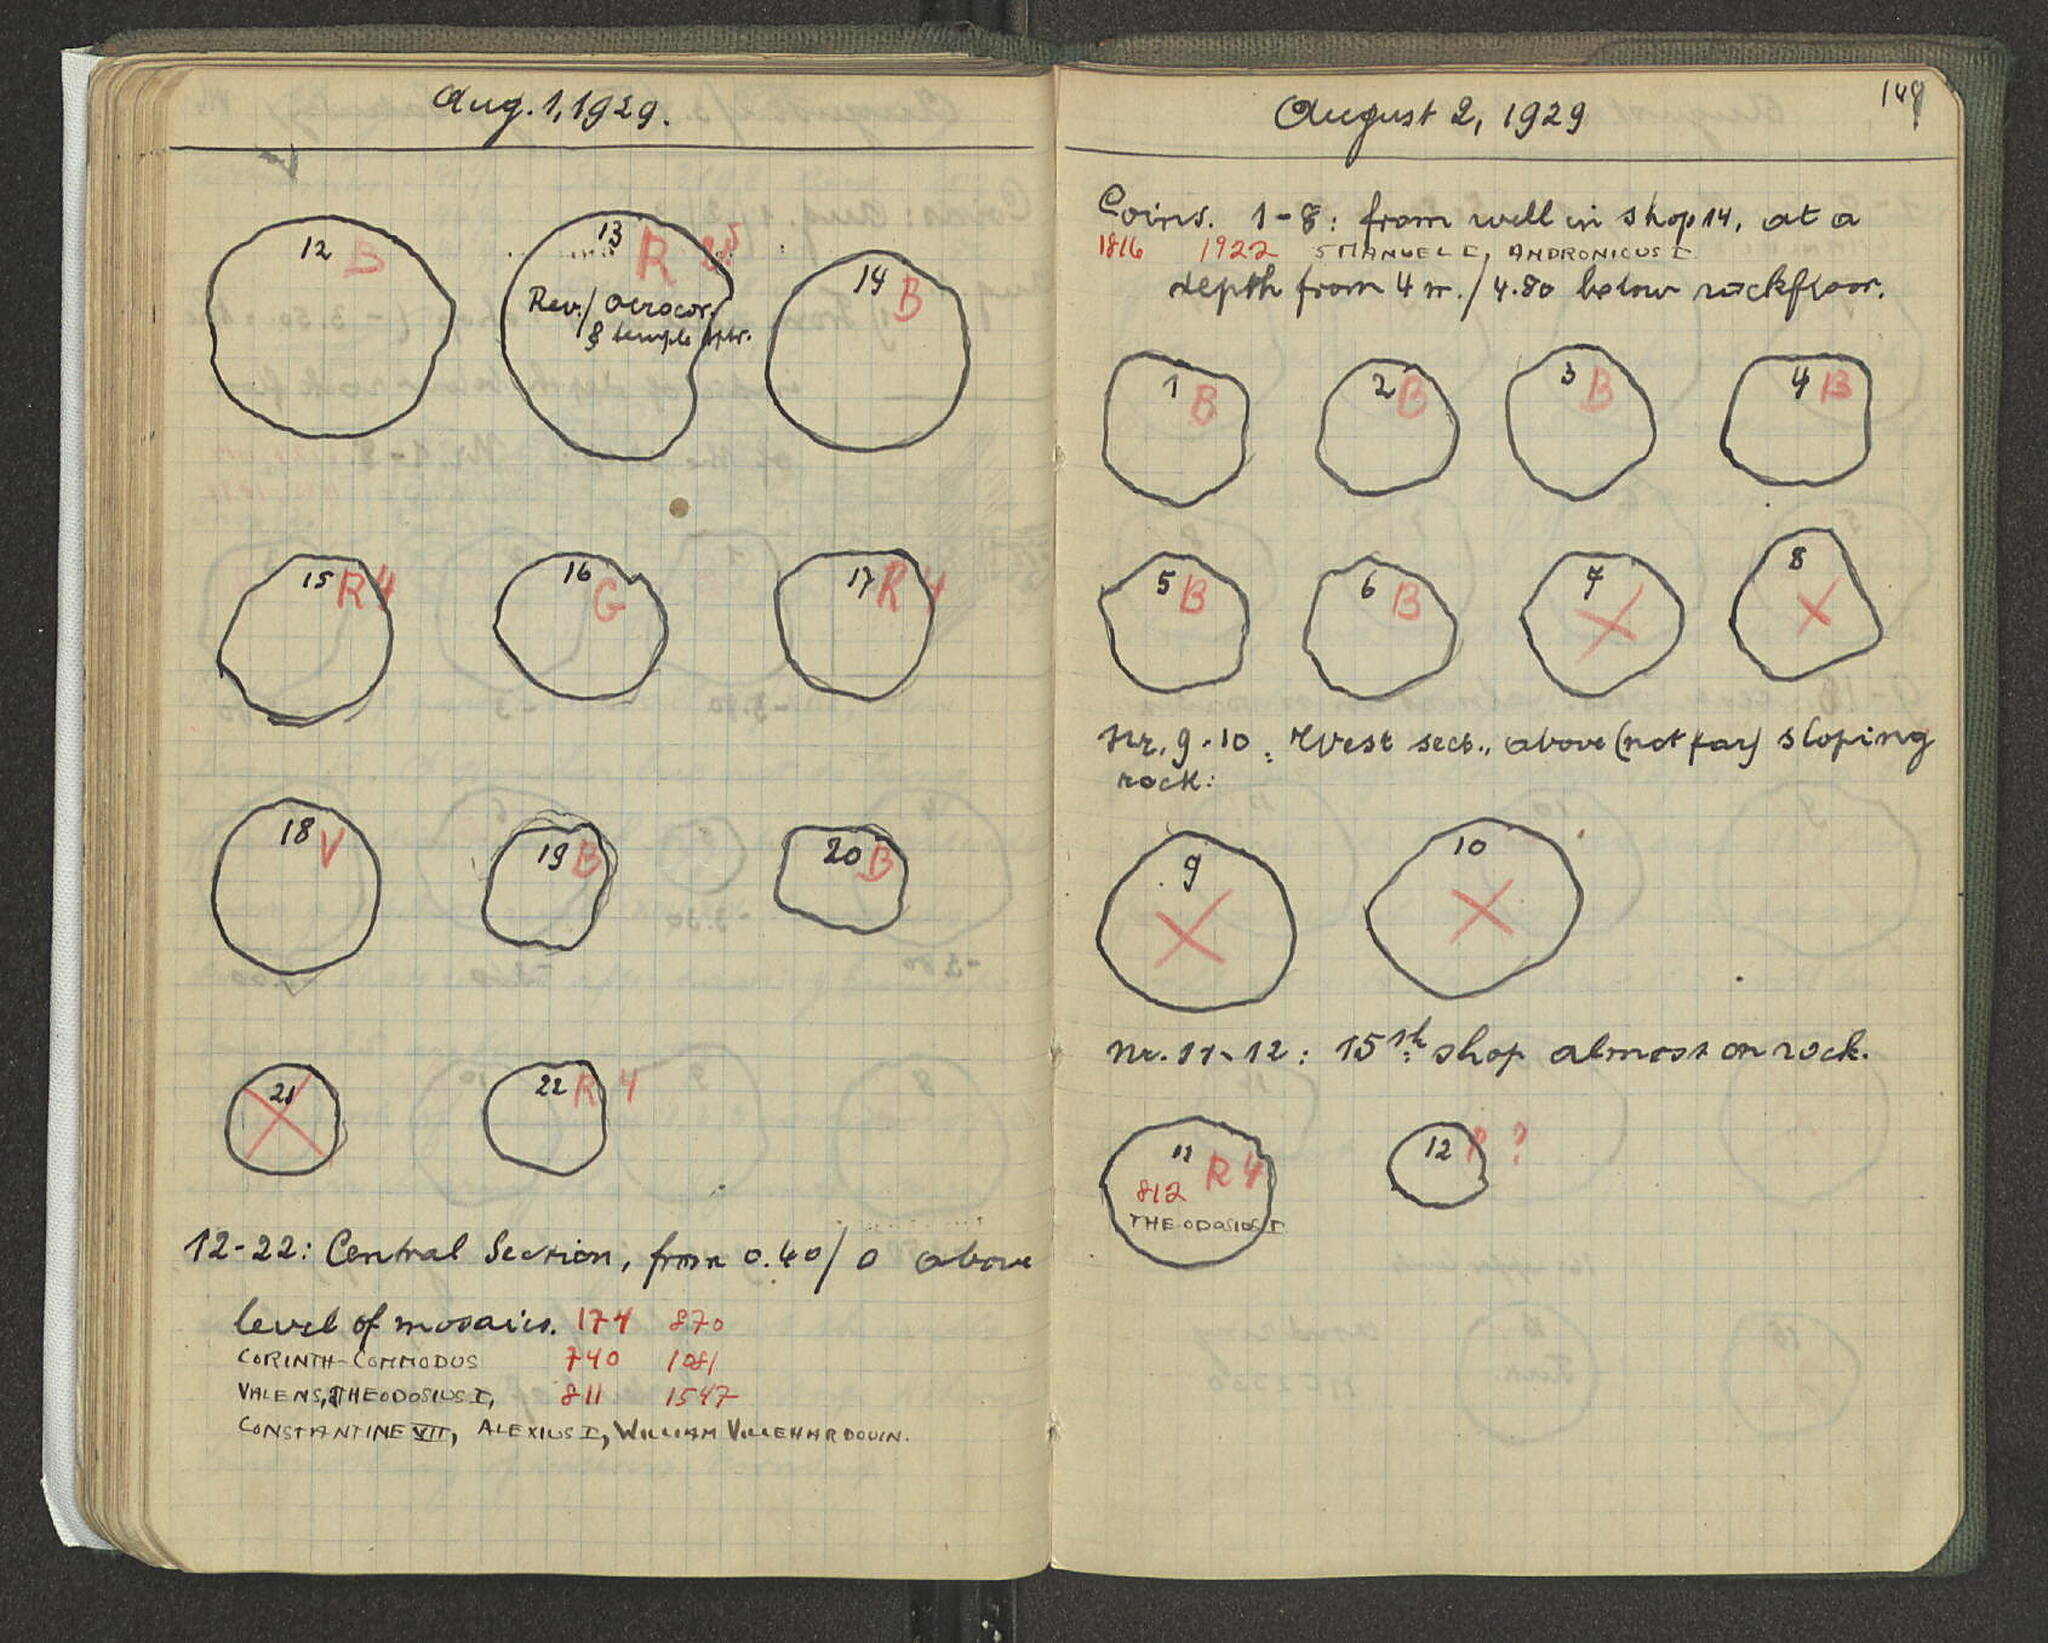 Aug. 1, 1929.
12 B
13 R
Rev./ Acrocor.
& temple
14 B
15 R 4
16 G
17 R 4
18 V
19 B
20 B
21
22 R 4
12-22: Central Section, from 0.40/0 above
level of mosaics. 174 870
CORINTH-COMMODUS 740 1081
VALENS, THEODOSIUS I, 811 1547
CONSTANTINE VII, ALEXIUS I, WILLIAM VILLEHARDOUIN.
148
August 2, 1929
Coins. 1-8: from well in shop 14, at a
1816 1922 5 MANUEL I, ANDRONICUS I
depth from 4 m./4.80 below rockfloor.
1 B
2 B
3 B
4 B
5 B
6 B
7
8
Nr. 9-10: West sect., above (not far) sloping
rock:
9
10
Nr. 11-12: 15th shop almost on rock.
11 R 4
812
THEODOSIUS I
12 ?